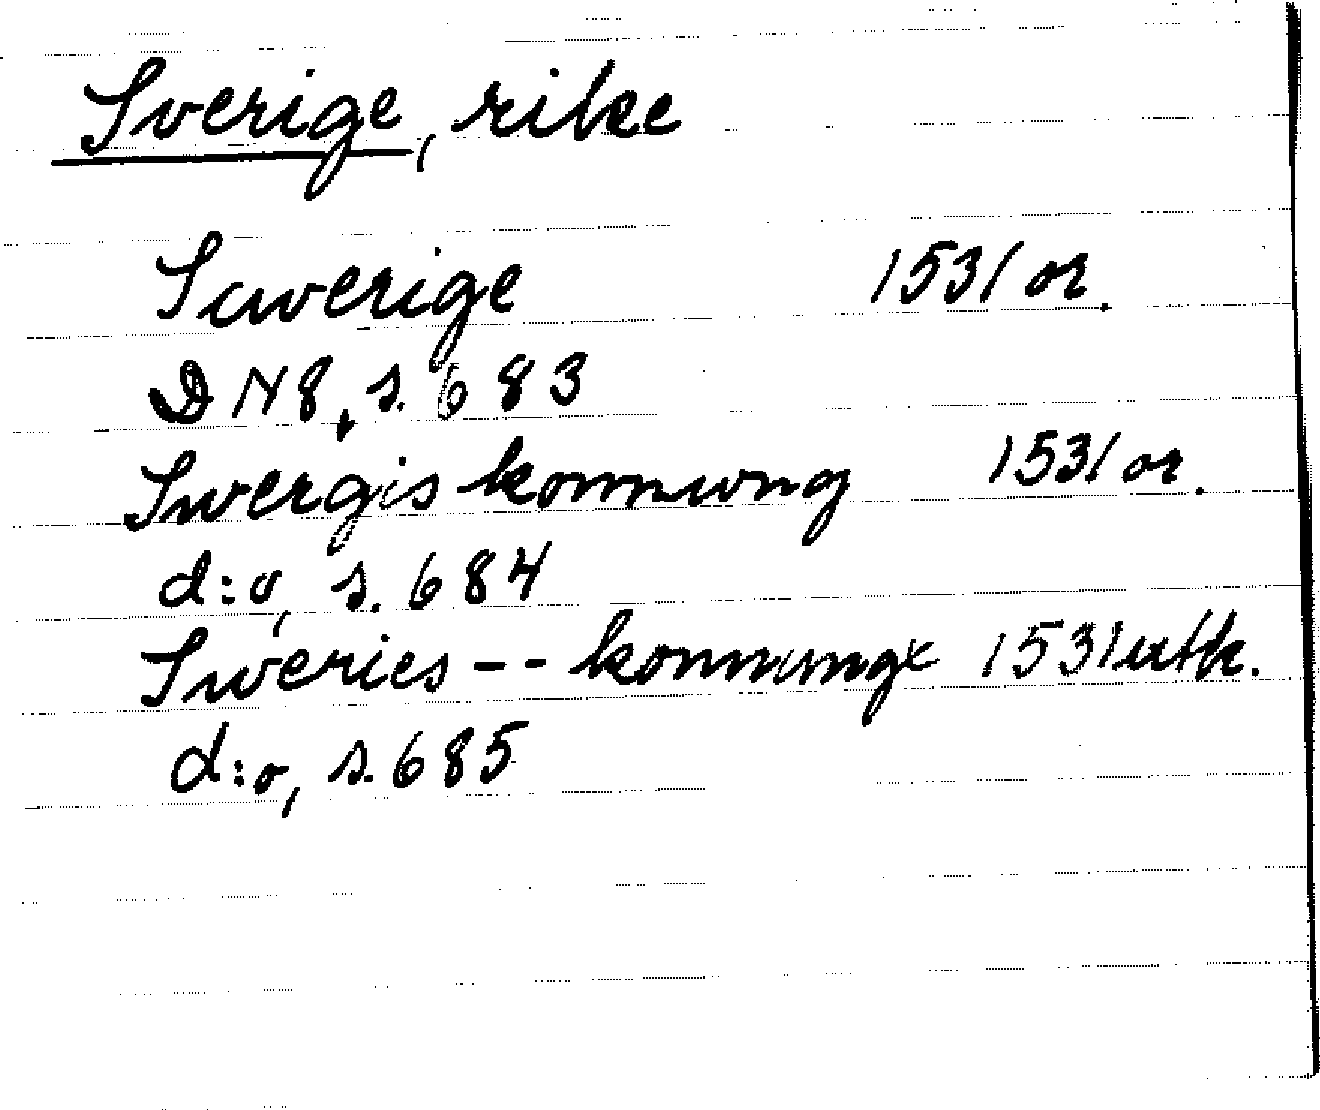 Sverige, rike
Suverige 1531 or.
DN 8, s. 683
Swergis konnwng 1531 or.
d:o, s. 684
Sweries -- konnungx 1531 utk.
d:o, s. 685